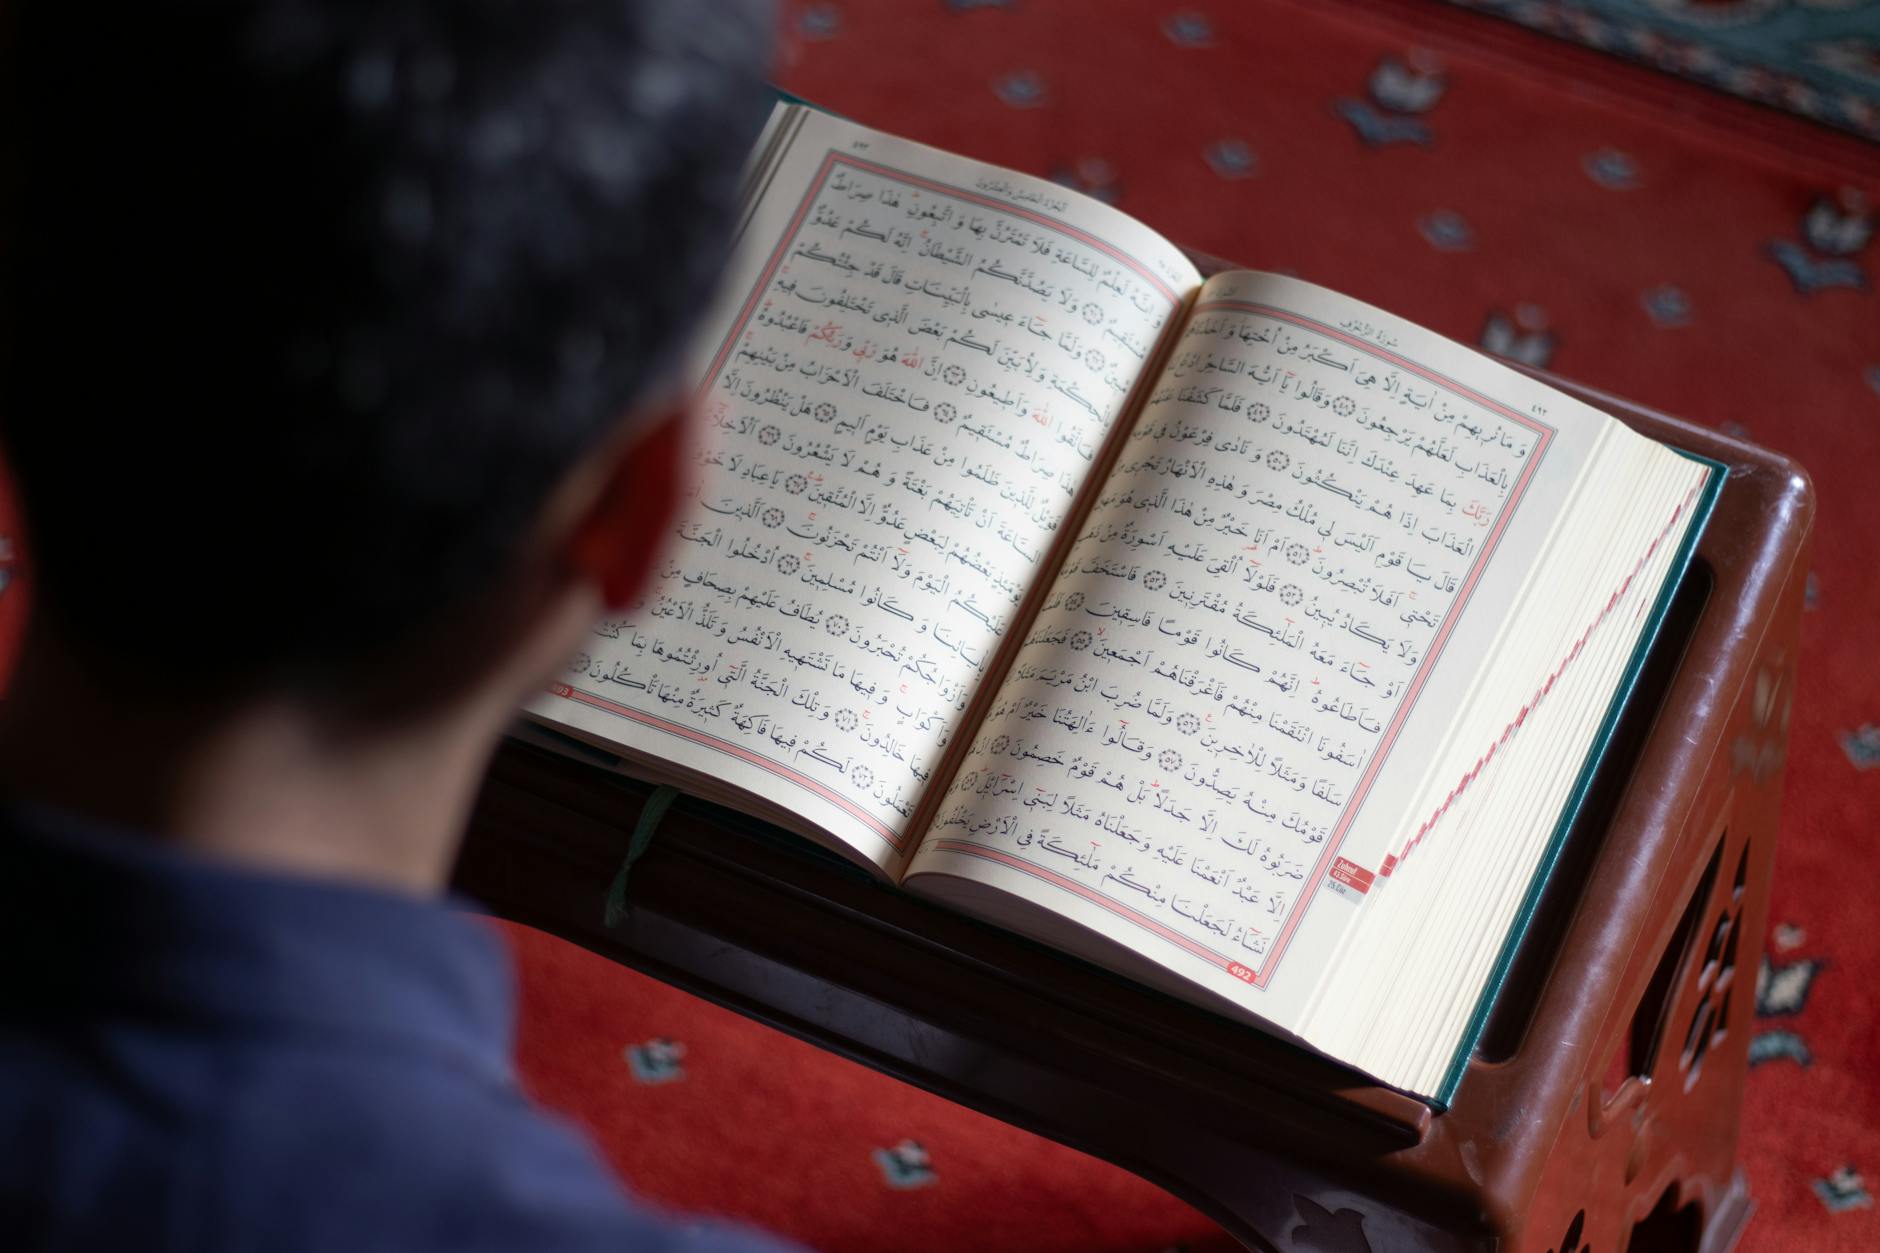 سُورَةُ الزُّخْرُفِ ٤٩٢
وَمَا نُرِيهِمْ مِنْ اٰيَةٍ اِلَّا هِيَ اَكْبَرُ مِنْ اُخْتِهَا
بِالْعَذَابِ لَعَلَّهُمْ يَرْجِعُونَ ﴿٤٨﴾ وَقَالُوا يَٓا اَيُّهَ السَّاحِرُ ادْعُ
رَبَّكَ بِمَا عَهِدَ عِنْدَكَ اِنَّنَا لَمُهْتَدُونَ ﴿٤٩﴾ فَلَمَّا كَشَفْنَا عَنْهُمُ
الْعَذَابَ اِذَا هُمْ يَنْكُثُونَ ﴿٥٠﴾ وَنَادٰى فِرْعَوْنُ فِي قَوْمِهِ
قَالَ يَا قَوْمِ اَلَيْسَ لِي مُلْكُ مِصْرَ وَهٰذِهِ الْاَنْهَارُ تَجْرِي مِنْ
تَحْتِي اَفَلَا تُبْصِرُونَ ﴿٥١﴾ اَمْ اَنَا خَيْرٌ مِنْ هٰذَا الَّذِي هُوَ مَهِينٌ
وَلَا يَكَادُ يُبِينُ ﴿٥٢﴾ فَلَوْلَٓا اُلْقِيَ عَلَيْهِ اَسْوِرَةٌ مِنْ ذَهَبٍ
اَوْ جَٓاءَ مَعَهُ الْمَلٰٓئِكَةُ مُقْتَرِنِينَ ﴿٥٣﴾ فَاسْتَخَفَّ قَوْمَهُ
فَاَطَاعُوهُ اِنَّهُمْ كَانُوا قَوْمًا فَاسِقِينَ ﴿٥٤﴾ فَلَمَّٓا
اٰسَفُونَا انْتَقَمْنَا مِنْهُمْ فَاَغْرَقْنَاهُمْ اَجْمَعِينَ ﴿٥٥﴾ فَجَعَلْنَاهُمْ
سَلَفًا وَمَثَلًا لِلْاٰخِرِينَ ﴿٥٦﴾ وَلَمَّا ضُرِبَ ابْنُ مَرْيَمَ مَثَلًا
قَوْمُكَ مِنْهُ يَصِدُّونَ ﴿٥٧﴾ وَقَالُٓوا ءَاٰلِهَتُنَا خَيْرٌ اَمْ هُوَ
ضَرَبُوهُ لَكَ اِلَّا جَدَلًا بَلْ هُمْ قَوْمٌ خَصِمُونَ ﴿٥٨﴾ اِنْ هُوَ
اِلَّا عَبْدٌ اَنْعَمْنَا عَلَيْهِ وَجَعَلْنَاهُ مَثَلًا لِبَنِٓي اِسْرَٓائِلَ ﴿٥٩﴾ وَلَوْ
نَشَٓاءُ لَجَعَلْنَا مِنْكُمْ مَلٰٓئِكَةً فِي الْاَرْضِ يَخْلُفُونَ
Zuhruf
43.Sûre
25.Cüz
492
اَلْجُزْءُ الْخَامِسُ وَالْعِشْرُونَ ٤٩٣
وَاِنَّهُ لَعِلْمٌ لِلسَّاعَةِ فَلَا تَمْتَرُنَّ بِهَا وَاتَّبِعُونِ هٰذَا صِرَاطٌ
مُسْتَقِيمٌ ﴿٦١﴾ وَلَا يَصُدَّنَّكُمُ الشَّيْطَانُ اِنَّهُ لَكُمْ عَدُوٌّ
مُبِينٌ ﴿٦٢﴾ وَلَمَّا جَٓاءَ عِيسٰى بِالْبَيِّنَاتِ قَالَ قَدْ جِئْتُكُمْ
بِالْحِكْمَةِ وَلِاُبَيِّنَ لَكُمْ بَعْضَ الَّذِي تَخْتَلِفُونَ فِيهِ
فَاتَّقُوا اللّٰهَ وَاَطِيعُونِ ﴿٦٣﴾ اِنَّ اللّٰهَ هُوَ رَبِّي وَرَبُّكُمْ فَاعْبُدُوهُ
هٰذَا صِرَاطٌ مُسْتَقِيمٌ ﴿٦٤﴾ فَاخْتَلَفَ الْاَحْزَابُ مِنْ بَيْنِهِمْ
فَوَيْلٌ لِلَّذِينَ ظَلَمُوا مِنْ عَذَابِ يَوْمٍ اَلِيمٍ ﴿٦٥﴾ هَلْ يَنْظُرُونَ اِلَّا
السَّاعَةَ اَنْ تَأْتِيَهُمْ بَغْتَةً وَهُمْ لَا يَشْعُرُونَ ﴿٦٦﴾ اَلْاَخِلَّٓاءُ
يَوْمَئِذٍ بَعْضُهُمْ لِبَعْضٍ عَدُوٌّ اِلَّا الْمُتَّقِينَ ﴿٦٧﴾ يَا عِبَادِ لَا خَوْفٌ
عَلَيْكُمُ الْيَوْمَ وَلَٓا اَنْتُمْ تَحْزَنُونَ ﴿٦٨﴾ اَلَّذِينَ
بِاٰيَاتِنَا وَكَانُوا مُسْلِمِينَ ﴿٦٩﴾ اُدْخُلُوا الْجَنَّةَ
وَاَزْوَاجُكُمْ تُحْبَرُونَ ﴿٧٠﴾ يُطَافُ عَلَيْهِمْ بِصِحَافٍ مِنْ
وَاَكْوَابٍ وَفِيهَا مَا تَشْتَهِيهِ الْاَنْفُسُ وَتَلَذُّ الْاَعْيُنُ
فِيهَا خَالِدُونَ ﴿٧١﴾ وَتِلْكَ الْجَنَّةُ الَّتِٓي اُورِثْتُمُوهَا بِمَا كُنْتُمْ
تَعْمَلُونَ ﴿٧٢﴾ لَكُمْ فِيهَا فَاكِهَةٌ كَثِيرَةٌ مِنْهَا تَأْكُلُونَ
493